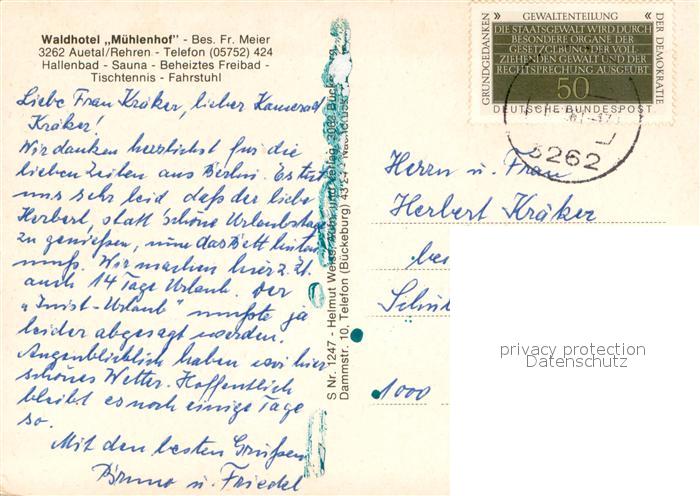 Waldhotel „Mühlenhof" - Bes. Fr. Meier
3262 Auetal/Rehren - Telefon (05752) 424
Hallenbad - Sauna - Beheiztes Freibad -
Tischtennis - Fahrstuhl
Liebe Frau Kräker, lieber Kamerad
Kräker!
Wir danken herzlichst für die
lieben Zeilen aus Berlin. Es tut
uns sehr leid, daß der liebe
Herbert, statt schöne Urlaubstage
zu genießen, nun das Bett hüten
muß. Wir machen hier z. Zt.
auch 14 Tage Urlaub. Der
-Urlaub" mußte ja
leider abgesagt werden.
Augenblicklich haben wir hier
schönes Wetter. Hoffentlich
bleibt es noch einige Tage
so.
Mit den besten Grüßen
Bruno u. Friedel
S Nr. 1247 - Helmut Weiss, und Verlag, 3062 Bückeburg
Dammstr. 10, Telefon (Bückeburg) 4324
» GEWALTENTEILUNG «
GRUNDGEDANKEN
DER DEMOKRATIE
DIE STAATSGEWALT WIRD DURCH
BESONDERE ORGANE DER
GESETZGEBUNG DER VOLL
ZIEHENDEN GEWALT UND DER
RECHTSPRECHUNG AUSGEÜBT
50
DEUTSCHE BUNDESPOST
3262
Herrn u. Frau
Herbert Kräker
bei
1000
privacy protection
Datenschutz